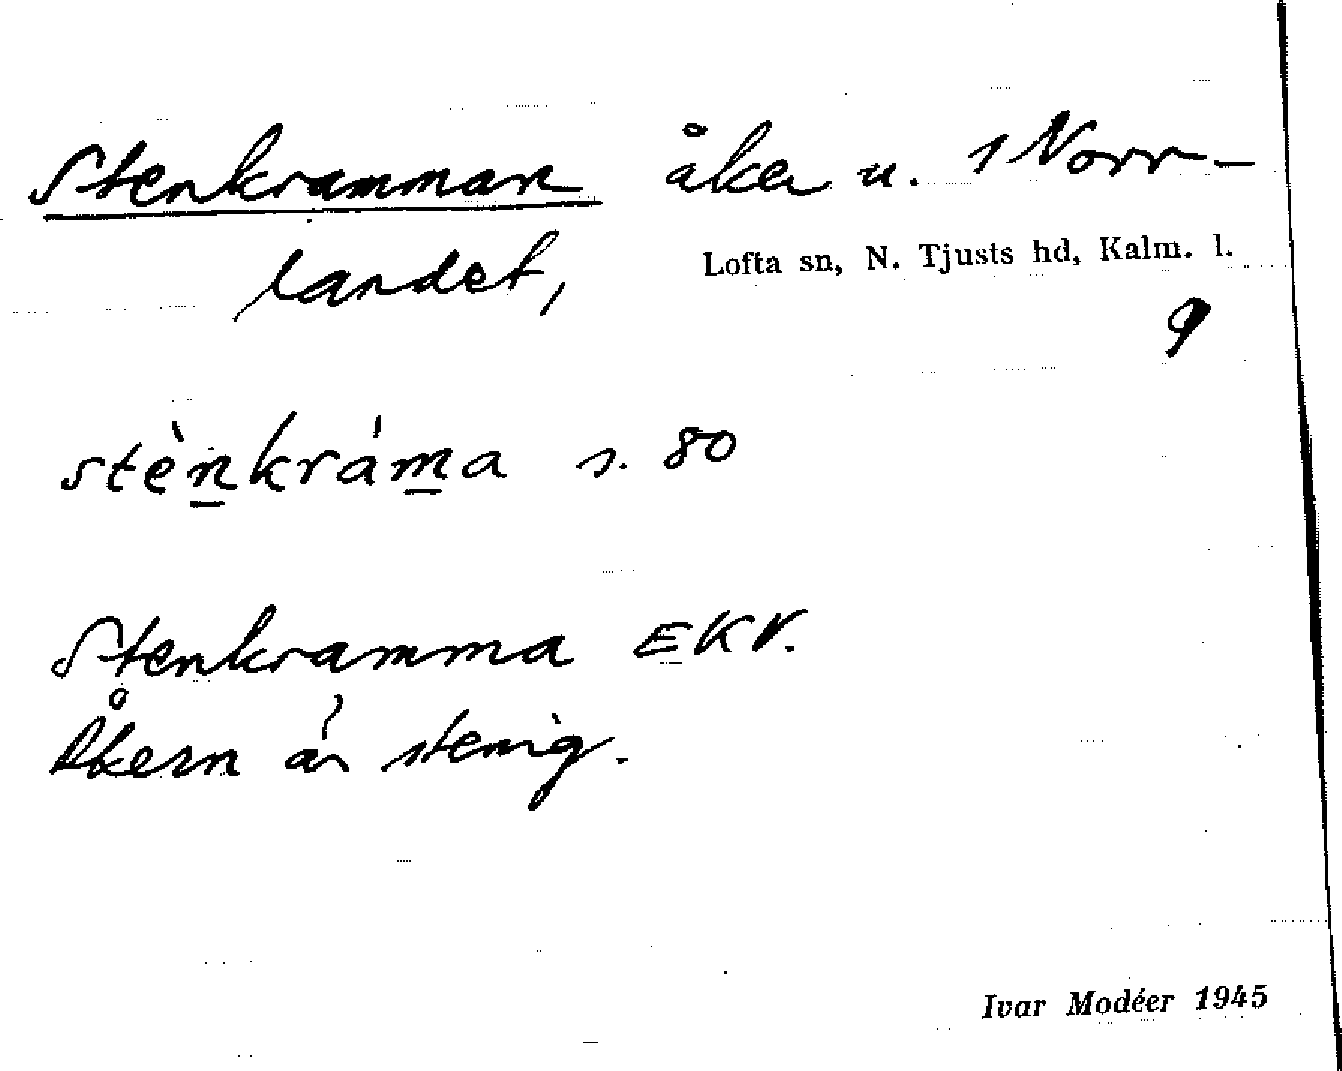 Stenkramman åker u. 1 Norr-
landet,
Lofta sn, N. Tjusts hd, Kalm. l.
9
stènkráma s. 80
Stenkramma EKV.
Åkern är stenig.
Ivar Modéer 1945